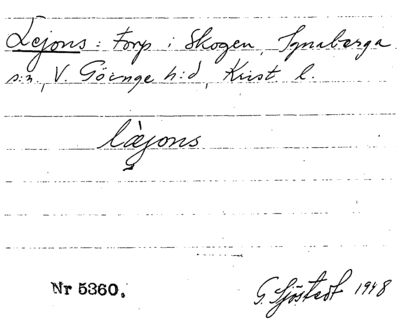 Lejons: Torp i Skogen, Ignaberga
s:n, V. Göinge h:d, Krist l.
làjons
Nr 5360.
G. Sjöstedt 1948